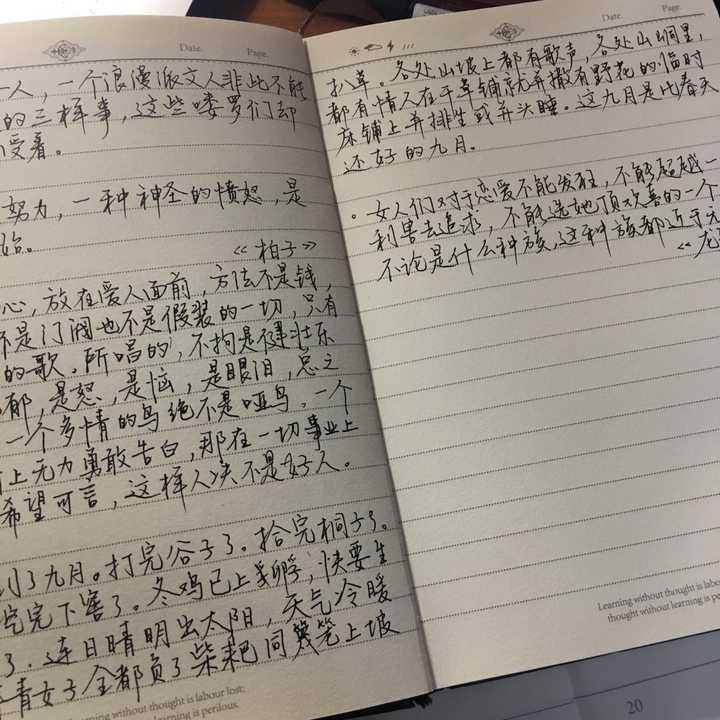 Date.
Page.
一人，一个浪漫派文人非此不能
的三样事，这些喽罗们却
受着。
努力，一种神圣的愤怒，是
始。
《柏子》
心，放在爱人面前，方法不是钱，
不是门阀也不是假装的一切，只有
的歌。所唱的，不拘是健壮乐
郁，是怒，是恼，是眼泪，总之
一个多情的鸟绝不是哑鸟。一个
上无力勇敢告白，那在一切事业上
希望可言，这样人决不是好人。
到了九月。打完谷子了。拾完桐子了。
完下窖了。冬鸡已上孵，快要生
了。连日晴明出太阳，天气冷暖
青女子全都负了柴耙同篾笼上坡
ning without thought is labour lost;
learning is perilous.
Date.
Page.
扒草。各处山坡上都有歌声，各处山峒里，
都有情人在干草铺就并撒有野花的临时
床铺上并排坐或并头睡。这九月是比春天
还好的九月。
女人们对于恋爱不能发狂，不能超越一
利害去追求，不能选她顶欢喜的一个
不论是什么种族，这种族都近于无
《龙
Learning without thought is lab
thought without learning is peri
20